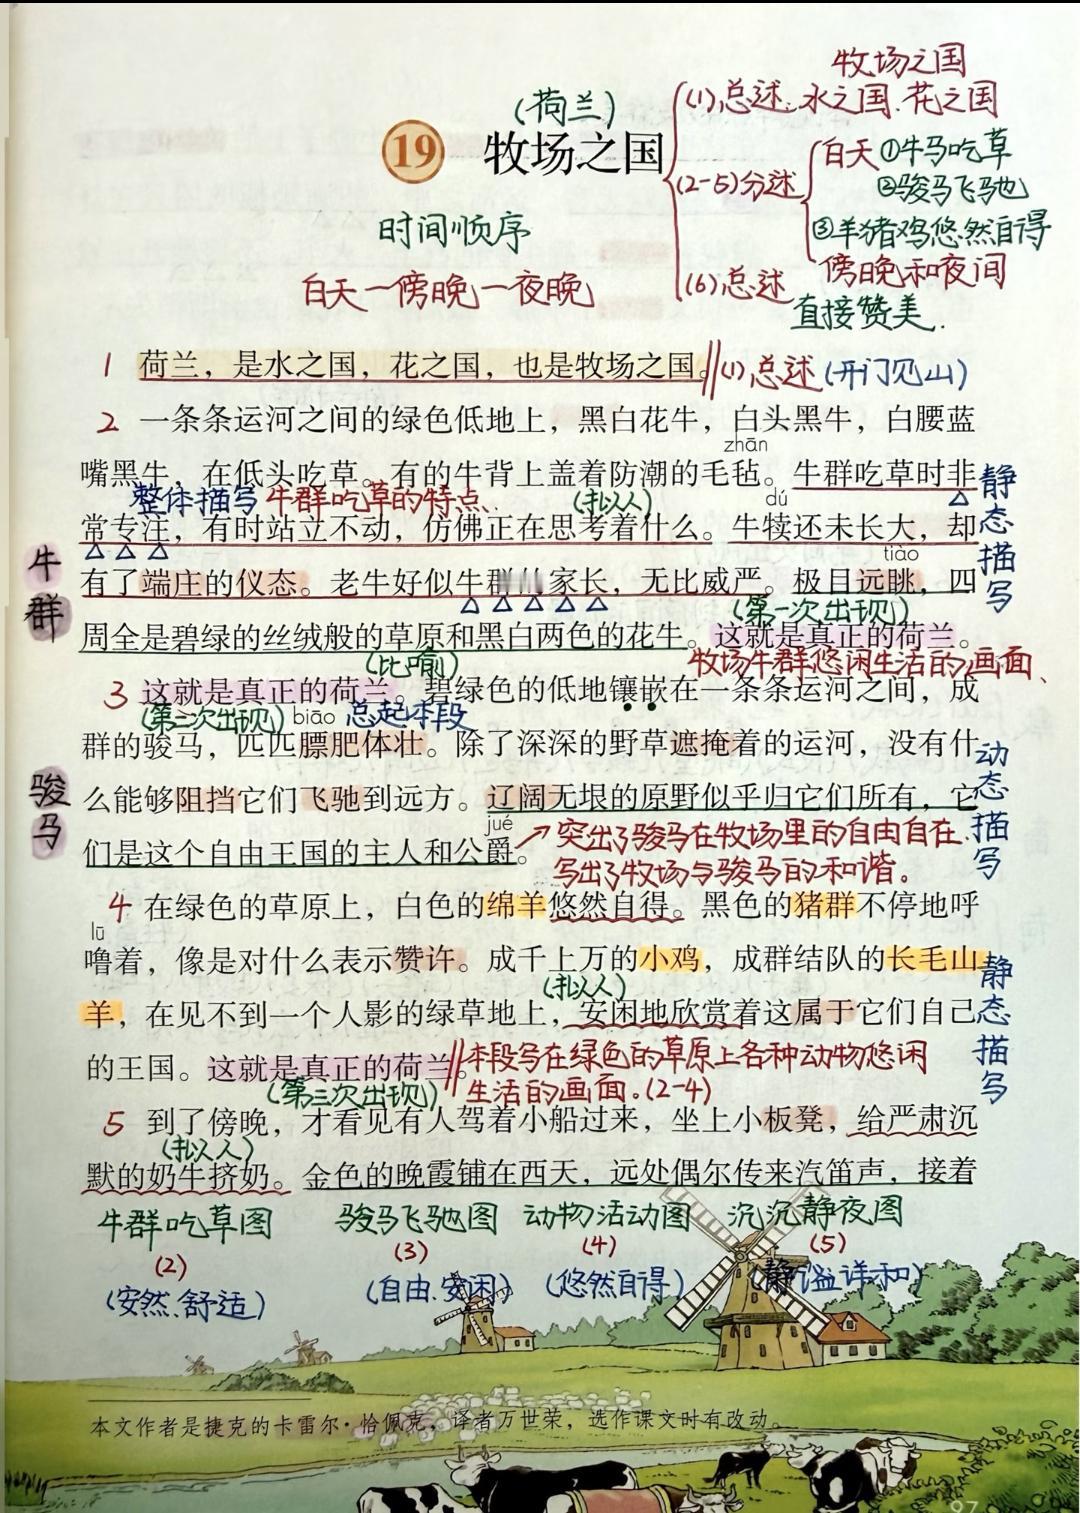 牧场之国
(荷兰)
(1)总述:水之国、花之国
19 牧场之国
白天①牛马吃草
(2-5)分述
②骏马飞马也
时间顺序
③羊猪鸡悠然自得
傍晚和夜间
白天—傍晚—夜晚
(6)总述
直接赞美.
1 荷兰，是水之国，花之国，也是牧场之国。 (1)总述(开门见山)
2 一条条运河之间的绿色低地上，黑白花牛，白头黑牛，白腰蓝
zhān
嘴黑牛，在低头吃草。有的牛背上盖着防潮的毛毡。牛群吃草时非
整体描写 牛群吃草的特点、 (拟人) dú
常专注，有时站立不动，仿佛正在思考着什么。牛犊还未长大，却
静态描写
tiào
牛群
有了端庄的仪态。老牛好似牛群 家长，无比威严。极目远眺，四
(第一次出现)
周全是碧绿的丝绒般的草原和黑白两色的花牛。这就是真正的荷兰。
(比喻) 牧场牛群悠闲生活的画面、
3 这就是真正的荷兰。碧绿色的低地镶嵌在一条条运河之间，成
(第二次出现) biāo 总起本段
群的骏马，匹匹膘肥体壮。除了深深的野草遮掩着的运河，没有什
动态描写
骏马
么能够阻挡它们飞驰到远方。辽阔无垠的原野似乎归它们所有，它
jué
突出了骏马在牧场里的自由自在.
们是这个自由王国的主人和公爵。
写出了牧场与骏马的和谐。
4 在绿色的草原上，白色的绵羊悠然自得。黑色的猪群不停地呼
lū
噜着，像是对什么表示赞许。成千上万的小鸡，成群结队的长毛山
静态描写
(拟人)
羊，在见不到一个人影的绿草地上，安闲地欣赏着这属于它们自己
的王国。这就是真正的荷兰。 本段写在绿色的草原上各种动物悠闲
(第三次出现) 生活的画面.(2-4)
5 到了傍晚，才看见有人驾着小船过来，坐上小板凳，给严肃沉
(拟人)
默的奶牛挤奶。金色的晚霞铺在西天，远处偶尔传来汽笛声，接着
牛群吃草图 骏马飞驰图 动物活动图 沉沉静夜图
(2) (3) (4) (5)
(安然、舒适) (自由、安闲) (悠然自得) (静谧详和)
本文作者是捷克的卡雷尔·恰佩克，译者万世荣，选作课文时有改动。
97